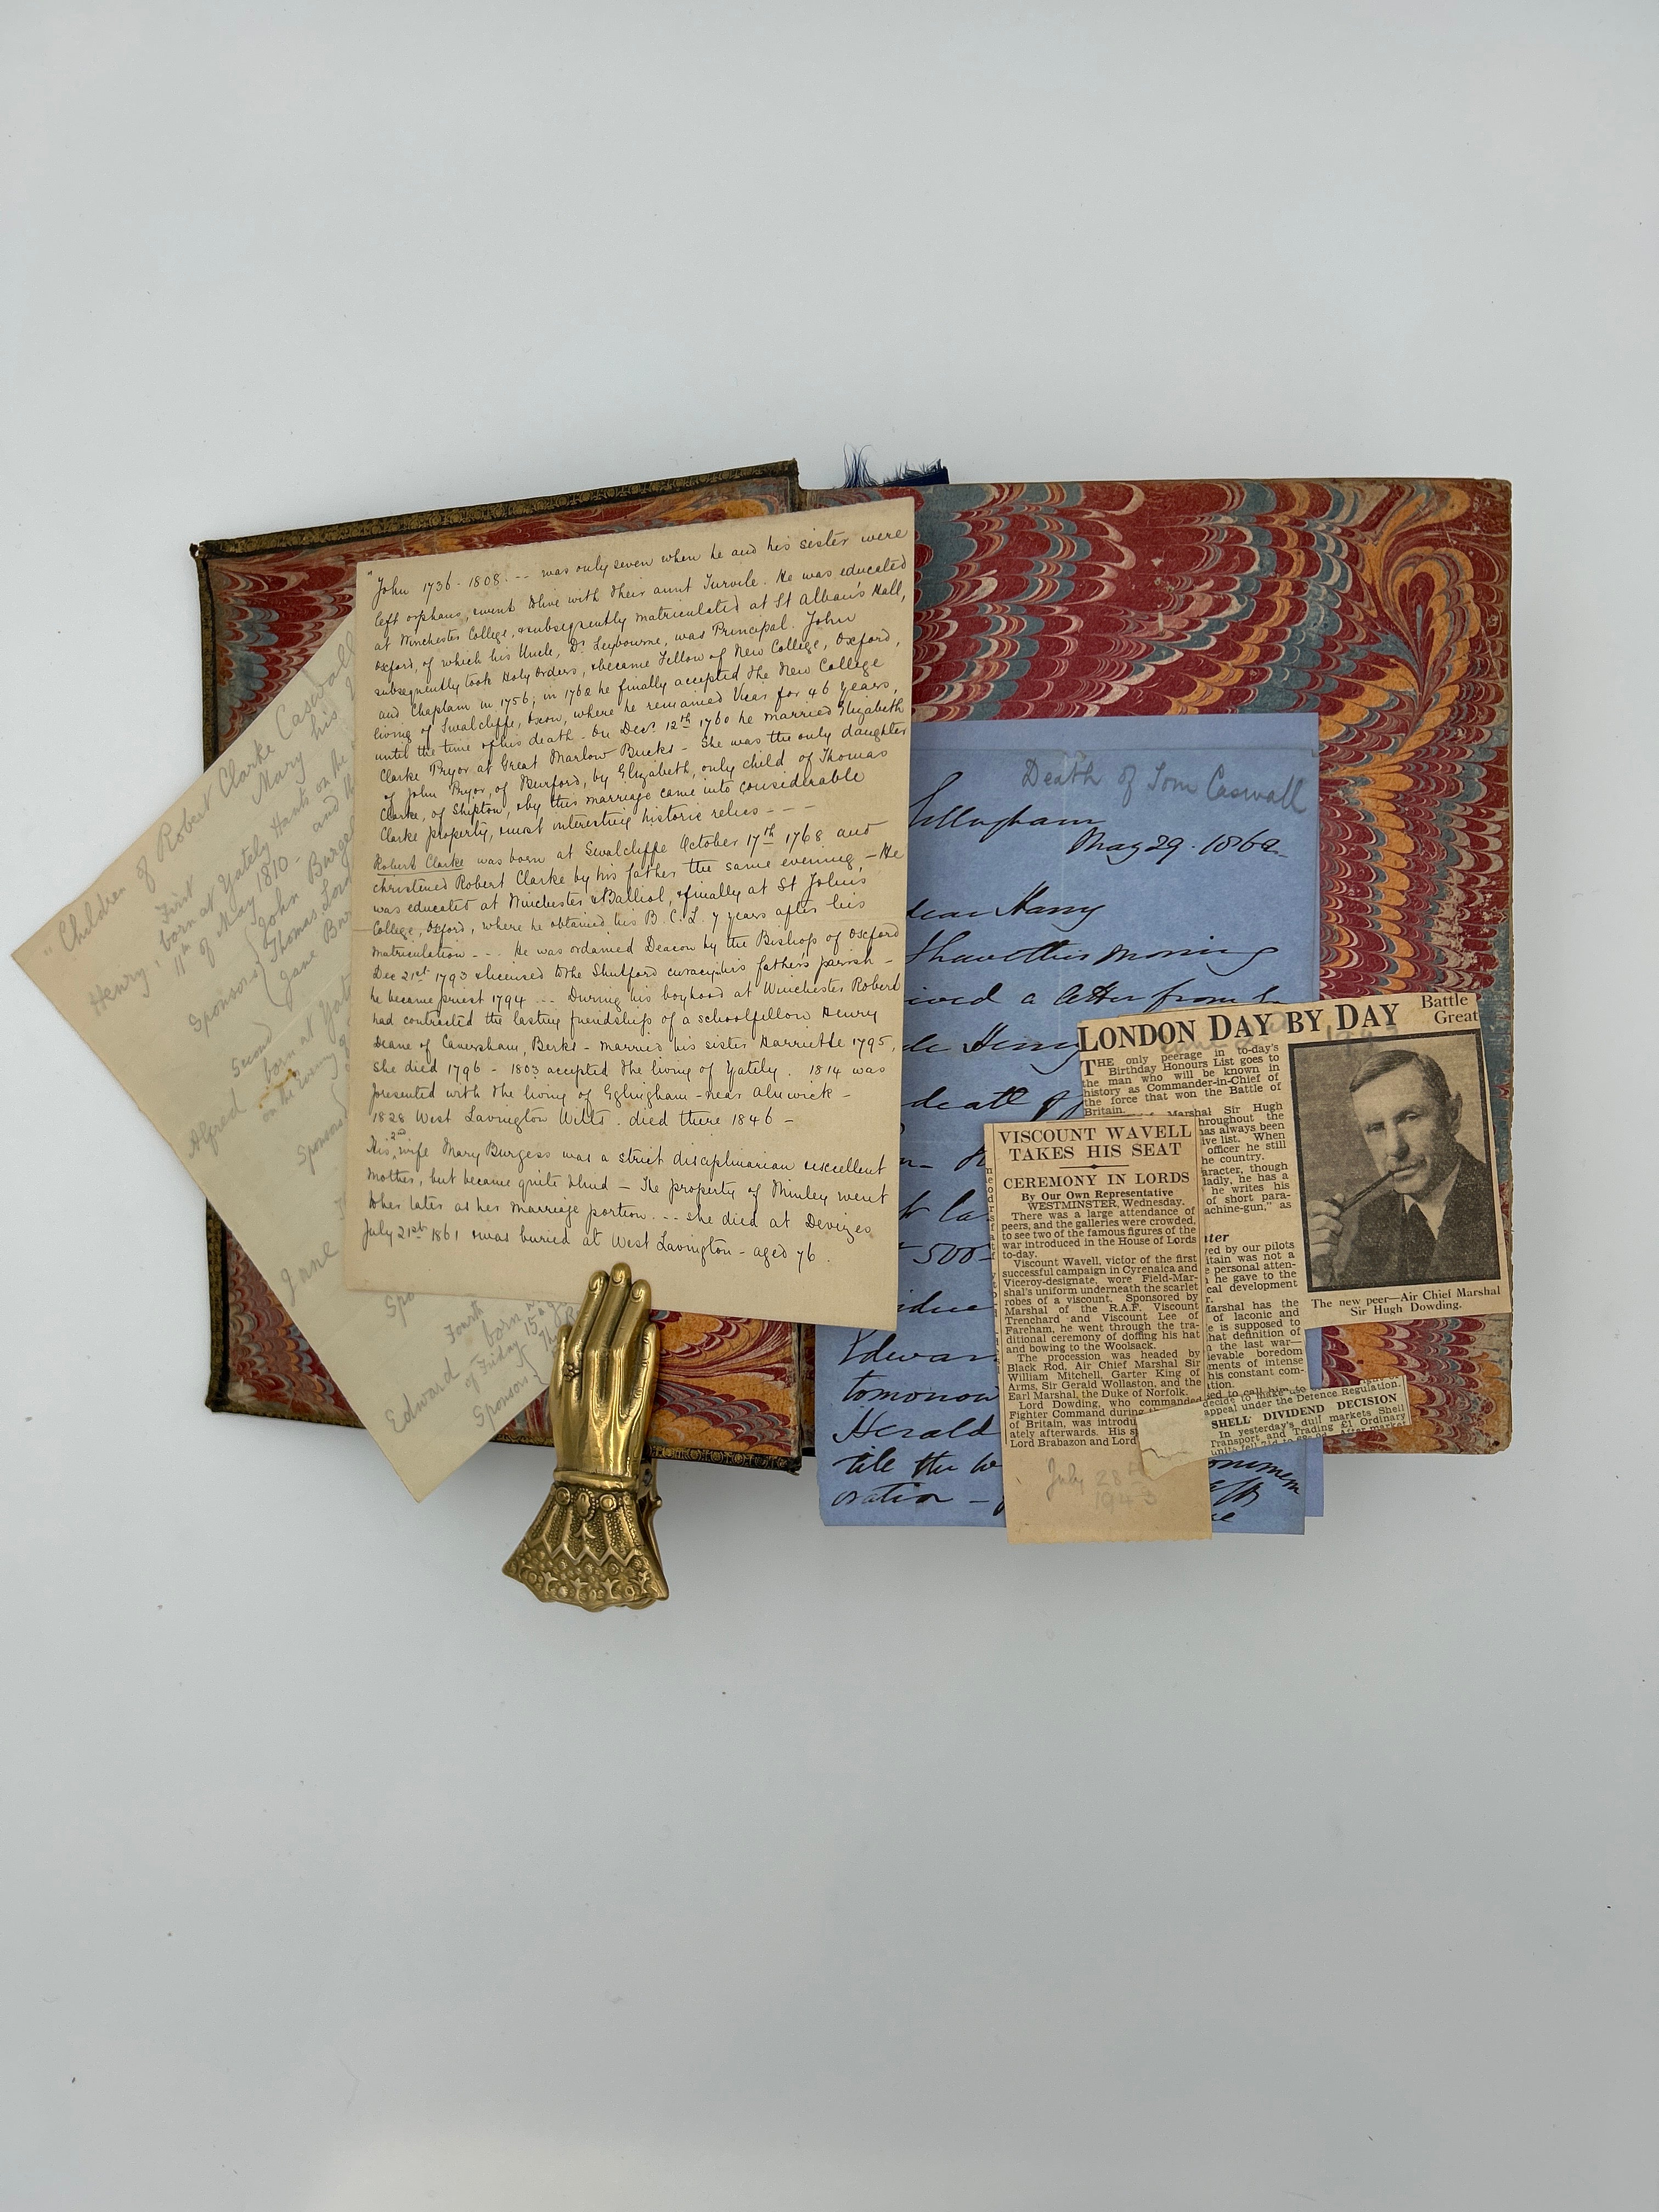 "Children of Robert Clarke Caswall
Mary his
First
Henry, born at Yately Hants on the
11th of May 1810 - and
Sponsors John Burge
Thomas
Jane
Second
Alfred born at Yate
on the evening of
Sponsors
Jane
Fourth
Edward born
of Friday 15
Sponsors
"John 1736-1808. -- was only seven when he and his sister were
left orphans, & went to live with their aunt Turvile. He was educated
at Winchester College, & subsequently matriculated at St Alban's Hall,
Oxford, of which his Uncle, Dr Leybourne, was Principal. John
subsequently took Holy Orders, & became Fellow of New College, Oxford,
and Chaplain in 1756; in 1762 he finally accepted the New College
living of Swalcliffe, Oxon, where he remained Vicar for 46 years,
until the time of his death - On Decr 12th 1760 he married Elizabeth
Clarke Pryor at Great Marlow Bucks - She was the only daughter
of John Pryor, of Burford, by Elizabeth, only child of Thomas
Clarke, of Shipton, & by this marriage came into considerable
Clarke property, & most interesting historic relics - - -
Robert Clarke was born at Swalcliffe October 17th 1768 and
christened Robert Clarke by his father the same evening - He
was educated at Winchester & Balliol, & finally at St John's
College, Oxford, where he obtained his B.C.L. 7 years after his
Matriculation - - . He was ordained Deacon by the Bishop of Oxford
Dec 21st 1793 & licensed to the Shutford curacy, his father's parish -
he became priest 1794 - - . During his boyhood at Winchester Robert
had contracted the lasting friendship of a schoolfellow Henry
Deane of Caversham, Berks - married his sister Harriette 1795,
She died 1796 - 1803 accepted the living of Yately. 1814 was
presented with the living of Eglingham - near Alnwick -
1828 West Lavington Wilts. died there 1846 -
His 2nd wife Mary Burgess was a strict disciplinarian & excellent
mother, but became quite blind - The property of Minley went
to her later as her marriage portion. - - She died at Devizes
July 21st 1861 & was buried at West Lavington - aged 76.
Death of Tom Caswall
May 29. 1862
dear Harry
I have this morning
ived a letter from
Henry
death of
500
Edwar
tomorrow
Herald
till the
oration -
LONDON DAY BY DAY
Battle
Great
THE only peerage in to-day's
Birthday Honours List goes to
the man who will be known in
history as Commander-in-Chief of
the force that won the Battle of
Britain.
Marshal Sir Hugh
hroughout the
has always been
ive list. When
officer he still
he country.
aracter, though
ladly, he has a
he writes his
of short para-
achine-gun," as
ter
ved by our pilots
itain was not a
e personal atten-
he gave to the
cal development
r.
Marshal has the
of laconic and
e is supposed to
hat definition of
the last war—
ievable boredom
ments of intense
his constant com-
tion.
sed to call him
The new peer—Air Chief Marshal
Sir Hugh Dowding.
VISCOUNT WAVELL
TAKES HIS SEAT
CEREMONY IN LORDS
By Our Own Representative
WESTMINSTER, Wednesday.
There was a large attendance of
peers, and the galleries were crowded,
to see two of the famous figures of the
war introduced in the House of Lords
to-day.
Viscount Wavell, victor of the first
successful campaign in Cyrenaica and
Viceroy-designate, wore Field-Mar-
shal's uniform underneath the scarlet
robes of a viscount. Sponsored by
Marshal of the R.A.F. Viscount
Trenchard and Viscount Lee of
Fareham, he went through the tra-
ditional ceremony of doffing his hat
and bowing to the Woolsack.
The procession was headed by
Black Rod, Air Chief Marshal Sir
William Mitchell, Garter King of
Arms, Sir Gerald Wollaston, and the
Earl Marshal, the Duke of Norfolk.
Lord Dowding, who commanded
Fighter Command during
of Britain, was introdu
ately afterwards. His s
Lord Brabazon and Lord
July 28th
1943
decide to make
appeal under the Defence Regulation.
SHELL DIVIDEND DECISION
In yesterday's dull markets Shell
Transport and Trading £1 Ordinary